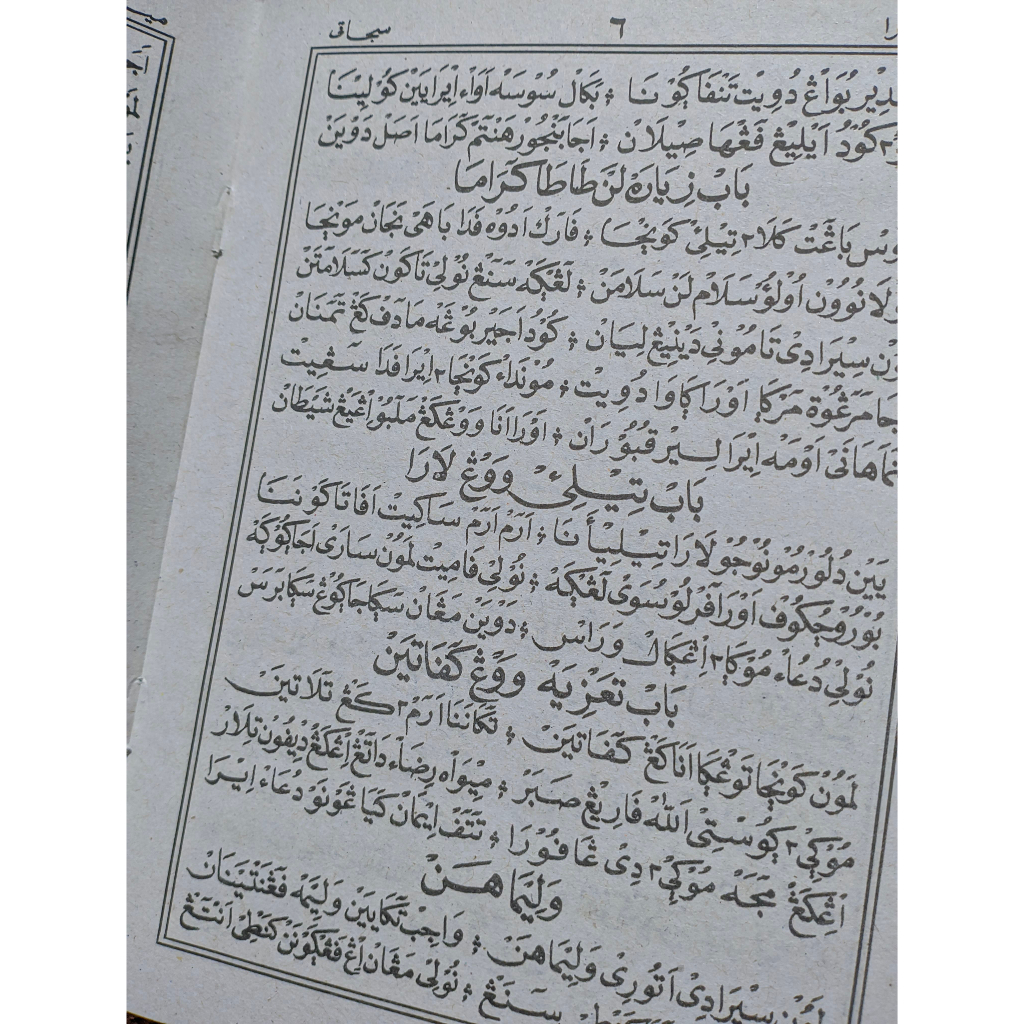 سجاتي ٦ را
ـدير بُواڠ دُويت تنفا ݢُونا ؛ بݢال سُوسه اَوَاء اِيرا يَين كَوُلِينا
٢ كُودُ اَيلِيڠ فَڠهاصِيلان ؛ اَجا بَنجُور هَنتم كراما اصل دَوين
باب زيارة لن طاطا كراما
ـوس باڠت كلا٢ تيلي كونجا ؛ فارك ادوه فدا باهي نجان مونجا
ولا نوون اولوؤ سلام لن سلامن ؛ لڠكه سنڠ نولي تاكون كسلامتن
ـون سيرا دي تاموني دينيڠ ليان ؛ كود اجير بوڠه مادف كڠ تمنان
جا مرڠوة مرݢا اورا ݢاوا دويت ؛ مونداء كونجا٢ ايرا فدا سڠيت
ـنما هاني اومه ايرا لسير قبوران ؛ اورا انا ووڠ كڠ ملبو اڠيڠ شيطان
باب تيلي ووڠ لارا
يين دلور مونوجو لارا تيليأنا ؛ ارم ارم ساكيت افا تاكونانا
بوروجكوف اورا فرلو سوي لڠكه ؛ نولي فاميت لمون ساري اجا ݢوݢه
نولي دعاء موݢا٢ اڠݢال وراس ؛ دوين مڠان سݢا جاݢوڠ سݢا برس
باب تعزيه ووڠ كفاتين
لمون كونجا توڠݢا انا كڠ كفاتين ؛ تكانانا ارم٢ كڠ تلاتين
موݢي٢ ݢوستي الله فاريڠ صبر ؛ ميواه رضاء داتڠ اڠكڠ ديفون تلار
اڠكڠ مجه موݢي٢ دي غافورا ؛ تتف ايمان كيا ڠونو دعاء ايرا
وليماهن
لمون سيرا دي اتوري وليماهن ؛ واجب تكا يين وليمه فڠنتينان
سنڠ ؛ نولي مڠان اڠ فڠݢونن كنطي انتڠ